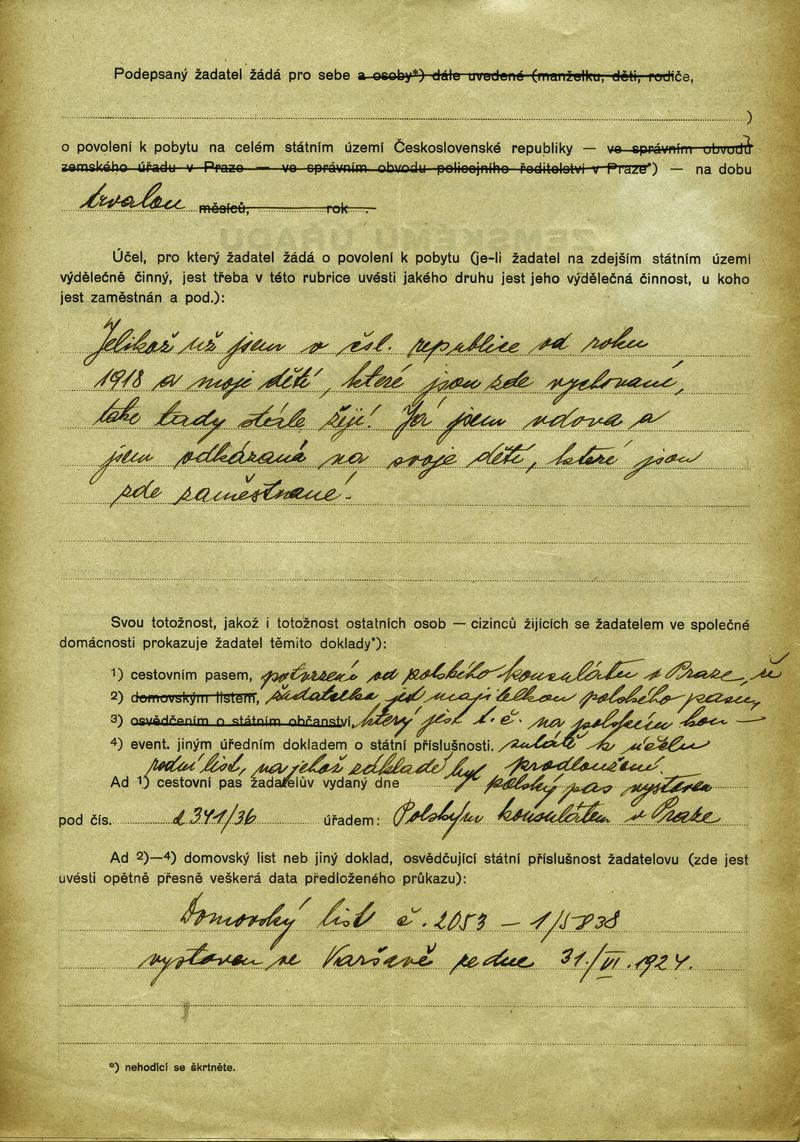 Podepsaný žadatel žádá pro sebe a osoby*) dále uvedené (manželku, děti, rodiče,
)
o povolení k pobytu na celém státním území Československé republiky — ve správním obvodu
zemského úřadu v Praze — ve správním obvodu policejního ředitelství v Praze*) — na dobu
trvalou měsíců, rok .
Účel, pro který žadatel žádá o povolení k pobytu (je-li žadatel na zdejším státním území
výdělečně činný, jest třeba v této rubrice uvésti jakého druhu jest jeho výdělečná činnost, u koho
jest zaměstnán a pod.):
Jelikož už jsem v čsl. republice od roku
1918 a moje děti, které jsou zde vychovaní,
také tady stále žijí. Já jsem vdova a
jsem odkázaná na svoje děti, které jsou
zde zaměstnané.
Svou totožnost, jakož i totožnost ostatních osob — cizinců žijících se žadatelem ve společné
domácnosti prokazuje žadatel těmito doklady*):
1) cestovním pasem, potvrzení od polského konsulátu v Praze, ž
2) domovským listem, žadatelka jest majitelkou polského pasu,
3) osvědčením o státním občanství, který jest t. č. na polském kon—
4) event. jiným úředním dokladem o státní příslušnosti. sulátě k účelu
list, na jehož základě byl prodloužení.
Ad 1) cestovní pas žadatelův vydaný dne polský pas vystaven
pod čís. 341/36 úřadem: Polským konsulátem v Praze
Ad 2)—4) domovský list neb jiný doklad, osvědčující státní příslušnost žadatelovu (zde jest
uvésti opětně přesně veškerá data předloženého průkazu):
Domovský list č. 2053 — 1/5838
vystaven ve Varšavě ze dne 31./VI. 1924.
*) nehodící se škrtněte.